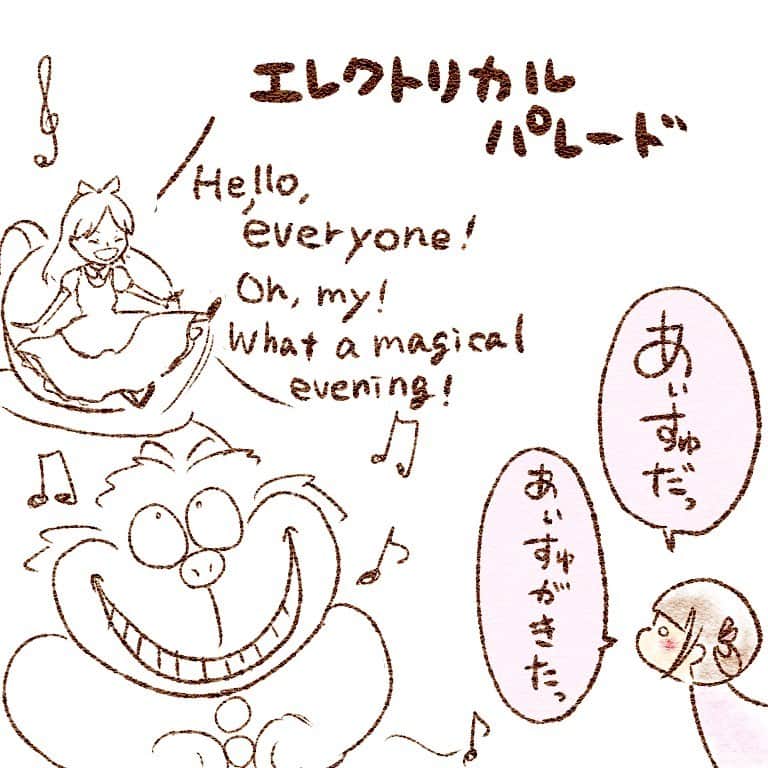 エレクトリカル
パレード
Hello,
everyone!
Oh, my!
What a magical
evening!
あぃすゅだっ
あぃすゅがきたっ